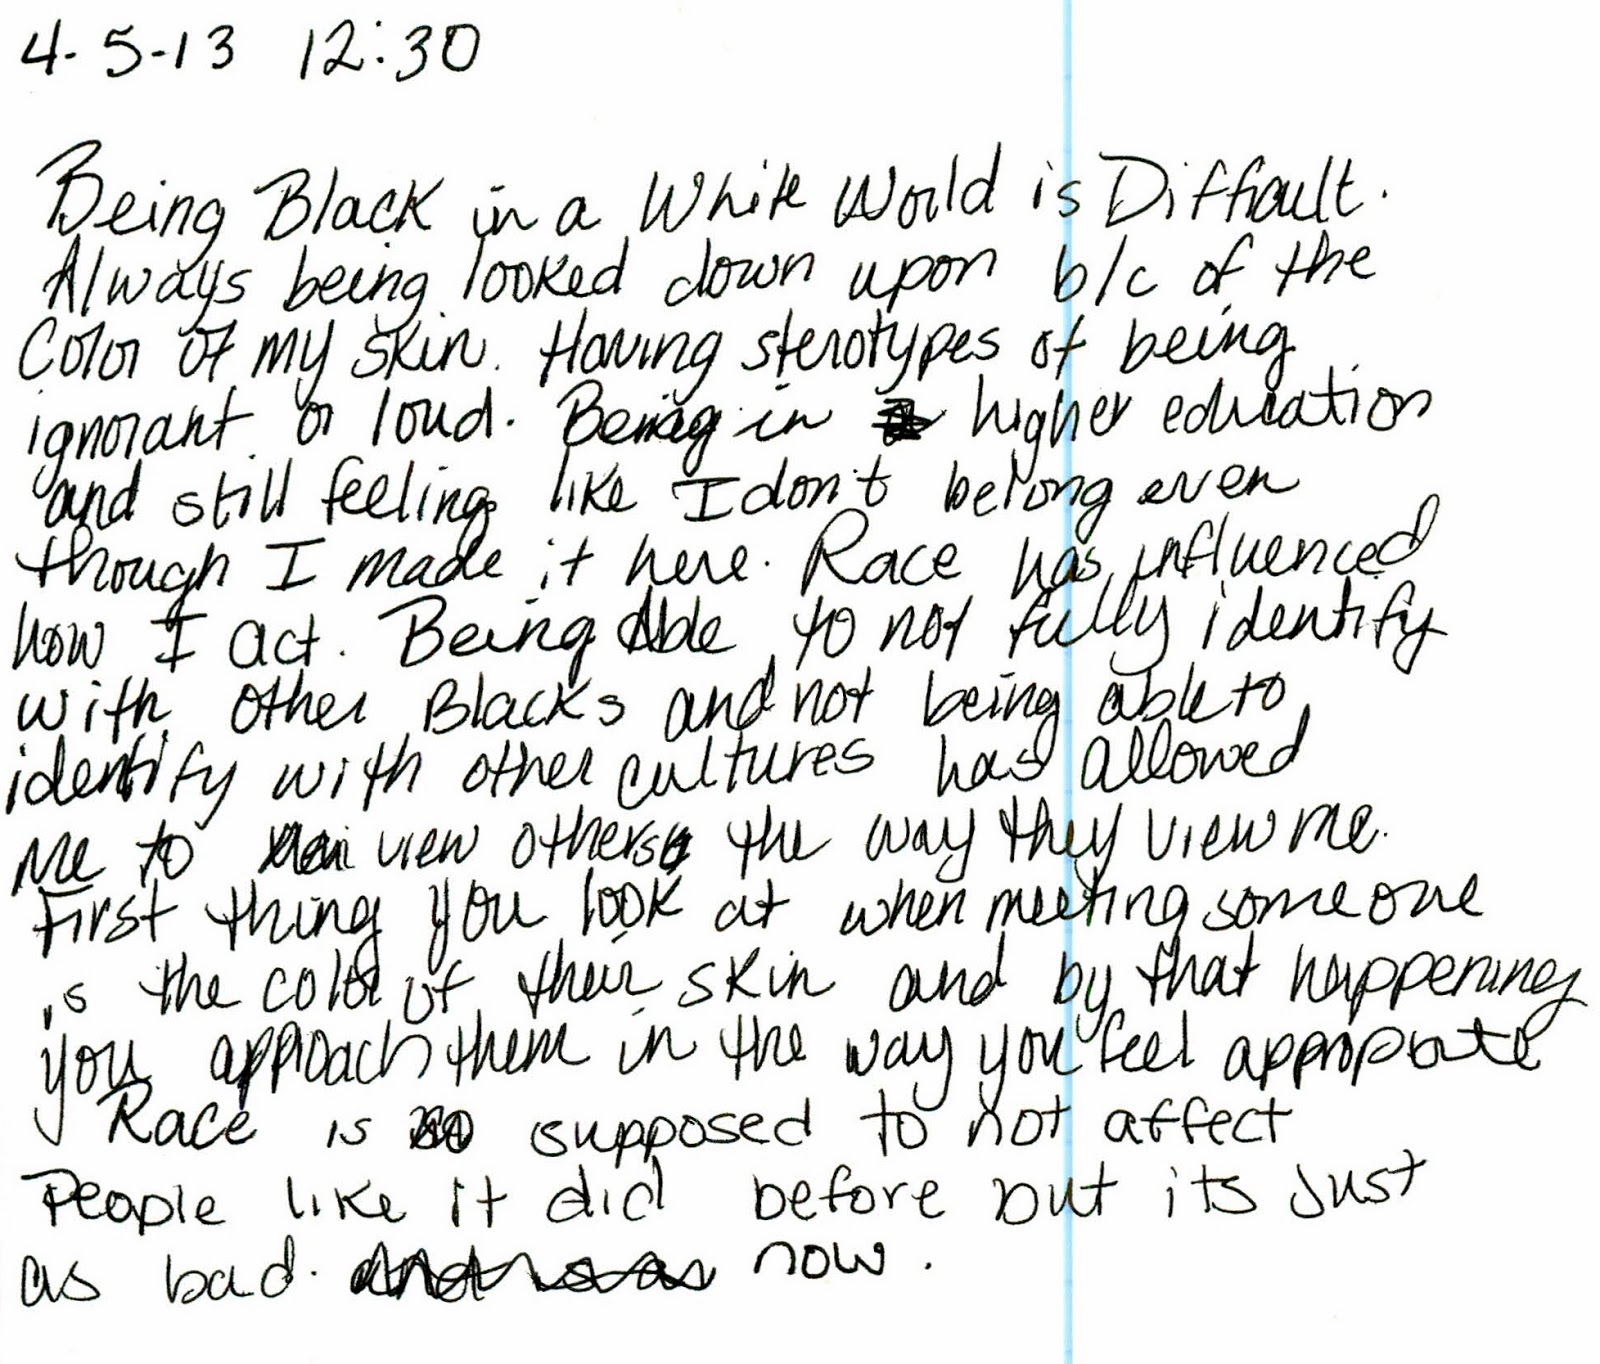 4-5-13 12:30
Being Black in a White World is Difficult.
Always being looked down upon b/c of the
Color of my skin. Having sterotypes of being
ignorant or loud. Being in higher education
and still feeling like I don't belong even
though I made it here. Race has influenced
how I act. Being Able to not fully identify
with other Blacks and not being able to
identify with other cultures has allowed
me to view others the way they view me.
First thing you look at when meeting someone
is the color of their skin and by that happening
you approach them in the way you feel appropriate
Race is supposed to not affect
People like it did before but its just
as bad. now.